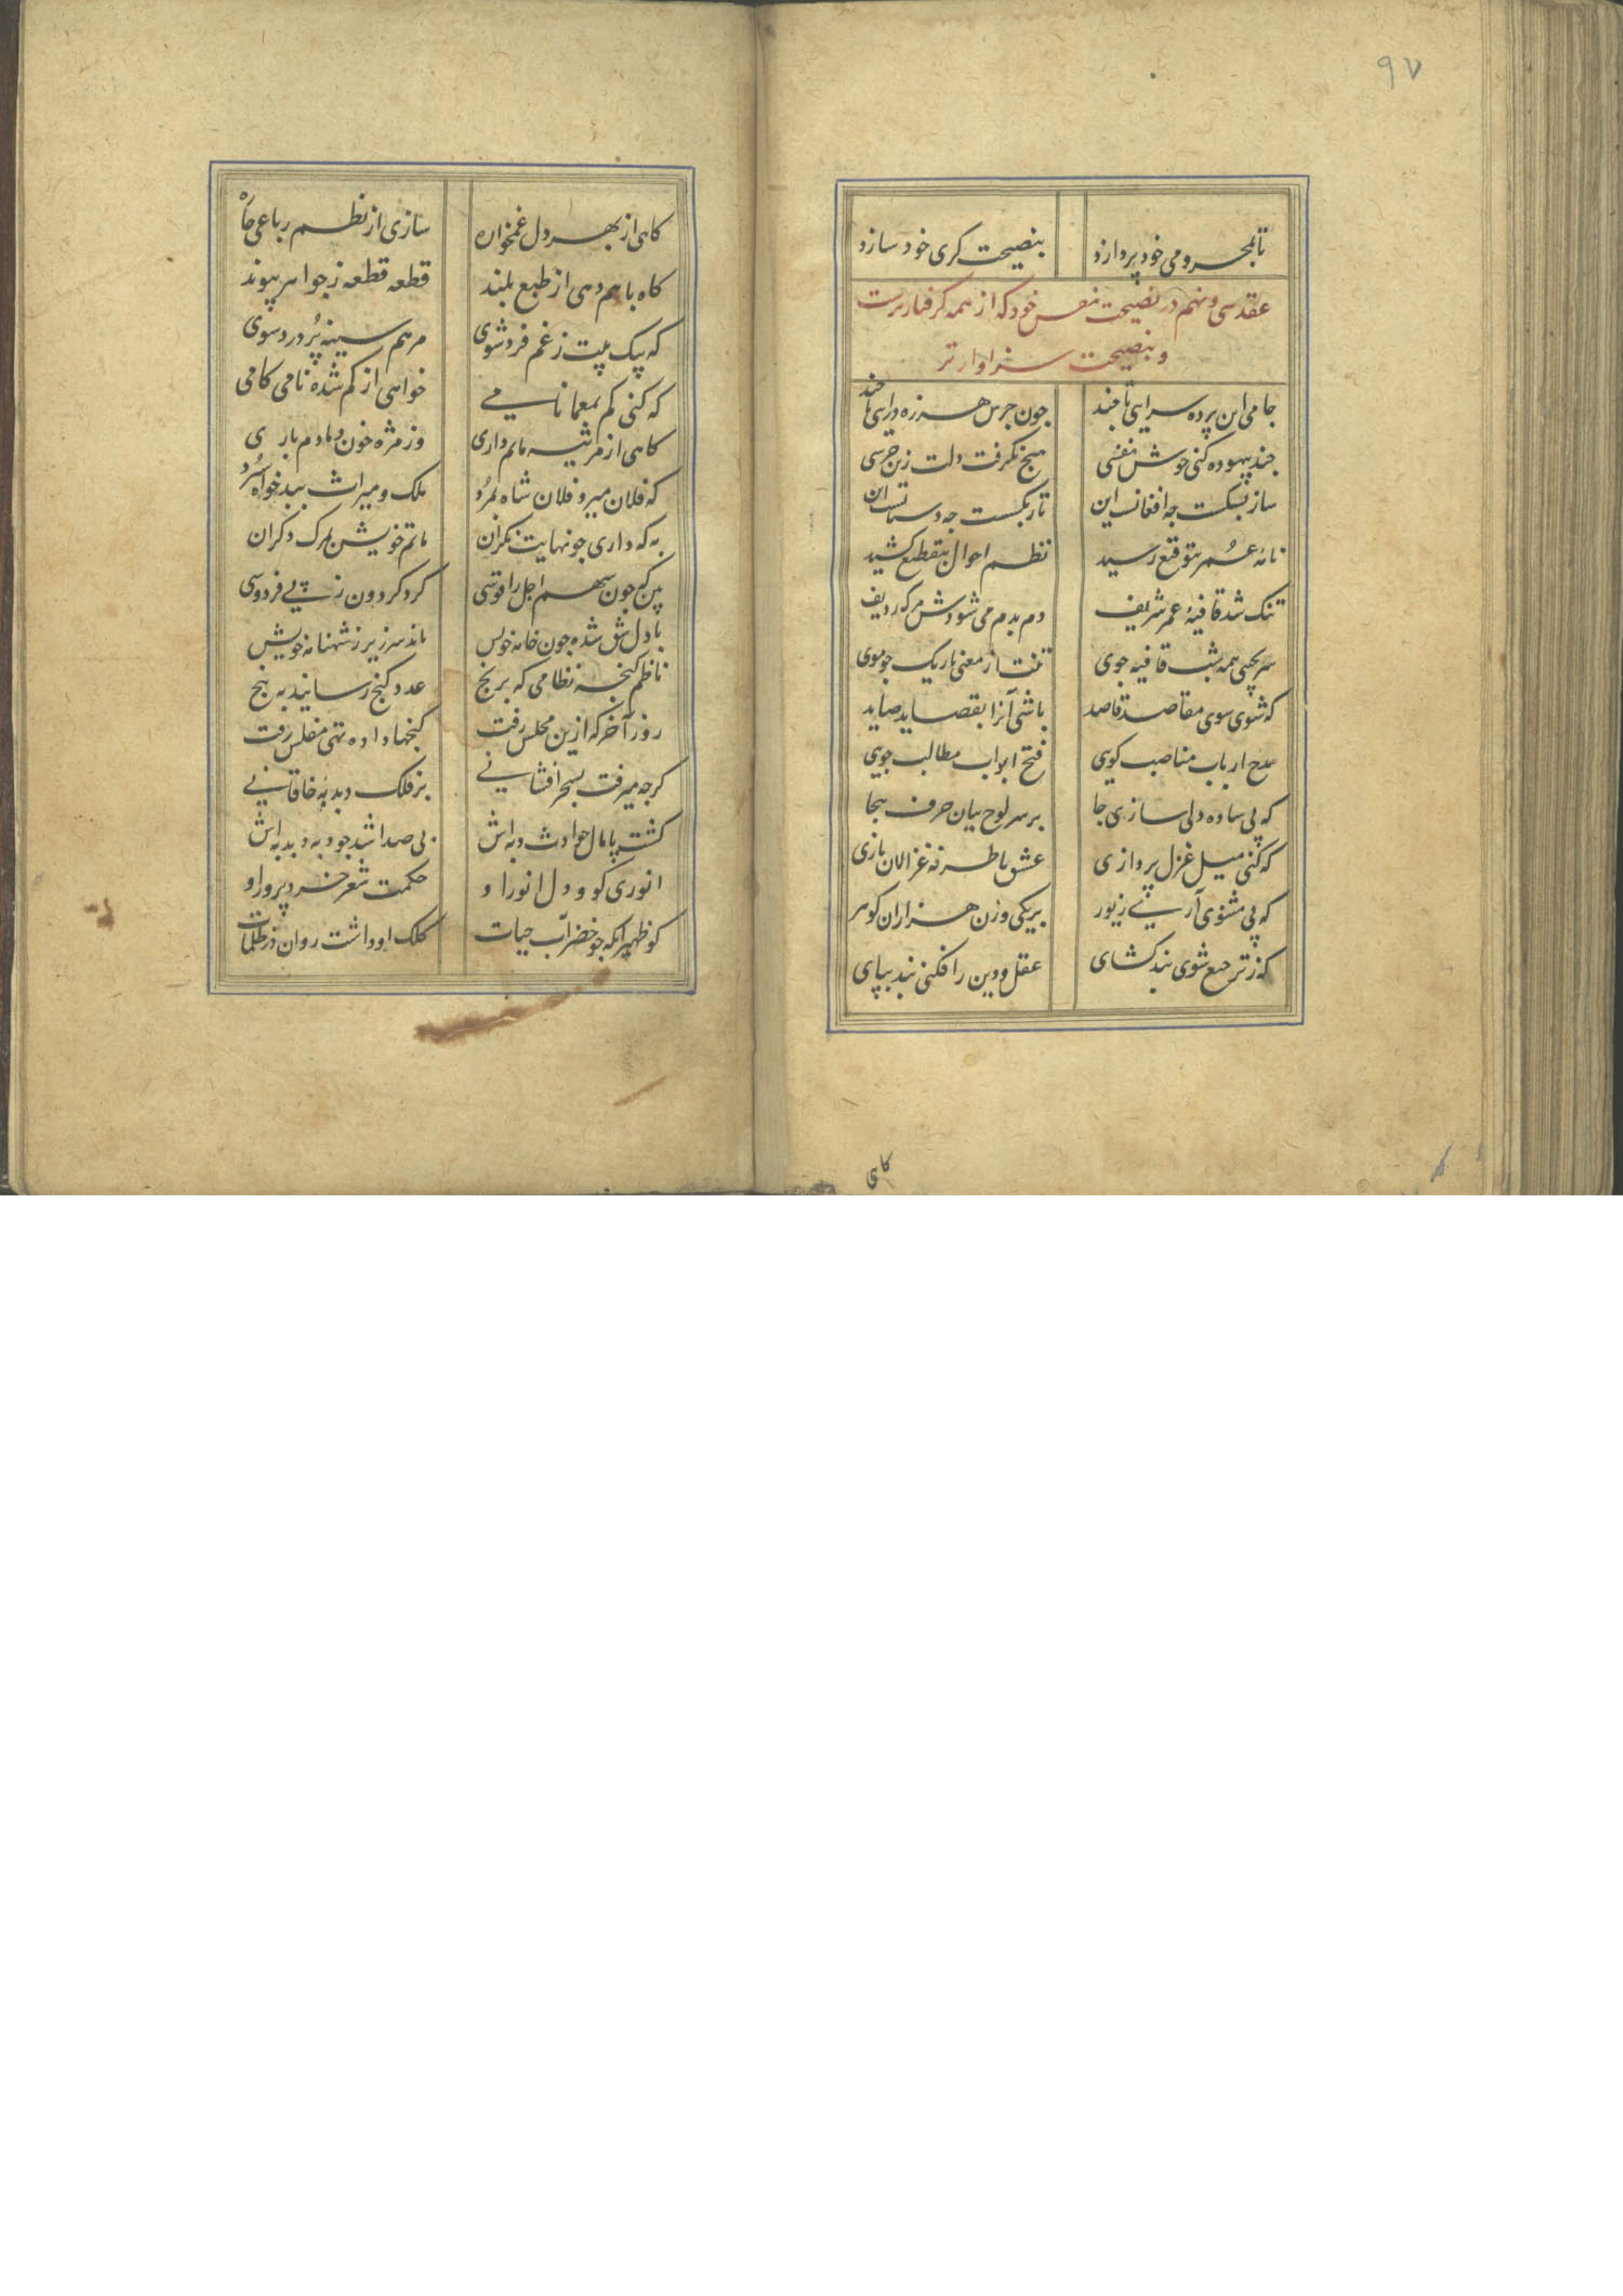 ۹۷
تا بمحرومی خود پردازد بنصیحت کری خود سازد
عقد سی و نهم در نصیحت نفس خود که از همه کرفتارترست
و بنصیحت سزاوارتر
جامی این پرده سرایی تا چند چون جرس هرزه درایی تا چند
چند بیهوده کنی خوش نفسی هیچ نکرفت دلت زین جرسی
ساز بشکست چه افغانست این تار بکسست چه دستانست این
نامهٔ عمر بتوقیع رسید نظم احوال بتقطیع کشید
تنک شد قافیهٔ عمر شریف دم بدم می شودش مرک ردیف
سر بجیبی همه شب قافیه جوی تنت از معنی باریک چو موی
که شوی سوی مقاصد قاصد باشی آنرا بقصاید صاید
مدح ارباب مناصب کویی فتح ابواب مطالب جویی
که پی ساده دلی سازی جا بر سر لوح بیان حرف هجا
که کنی میل غزل پردازی عشق با طرفه غزالان بازی
که پی مثنوی آری زیور بر یکی وزن هزاران کوهر
که ز ترجیع شوی بند کشای عقل و دین را فکنی بند بپای
کاهی
کاهی از بهر دل غمخواره سازی از نظم رباعی چاره
کاه با هم دهی از طبع بلند قطعه قطعه ز جواهر پیوند
که بیک بیت ز غم فرد شوی مرهم سینهٔ پُر درد شوی
که کنی کم بمعما نامی خواهی از کم شده نامی کامی
کاهی از مرثیه ماتم داری وز مژه خون دمادم باری
که فلان میر و فلان شاه بمُرد ملک و میراث ببدخواه سُپرد
به که داری چو نهایت نکران ماتم خویش بمرک دکران
بین که چون سهم اجل را قوسی کرد کردون ز پی فردوسی
با دل شق شده چون خامهٔ خویش ماند سرزیر ز شهنامهٔ خویش
ناظم کنجه نظامی که برنج عدد کنج رسانید به پنج
روز آخر که ازین مجلس رفت کنجها داده تهی مفلس رفت
کرچه میرفت بسحر افشانی بر فلک دبدبهٔ خاقانی
کشت پامال حوادث دبه اش بی صدا شد چو دبه دبدبه اش
انوری کو و دل انور او حکمت شعر خرد پرور او
کو ظهیر آنکه چو خضر آب حیات کلک او داشت روان در ظلمات